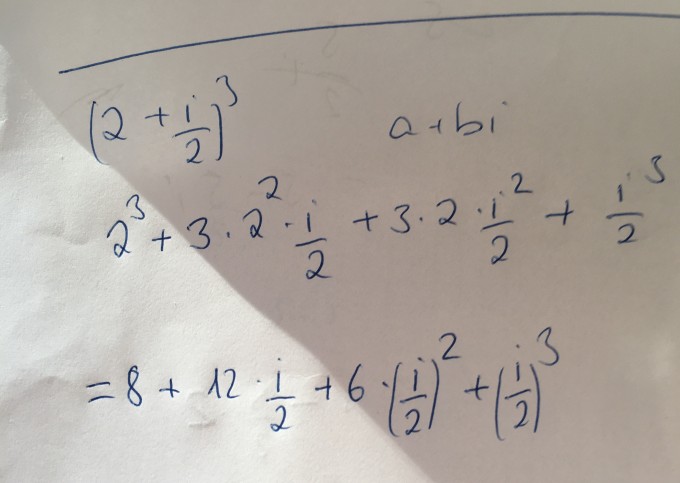 (2 + i/2)³ a+bi
2³ + 3·2²·i/2 + 3·2·i²/2 + i³/2
= 8 + 12·i/2 + 6·(i/2)² + (i/2)³